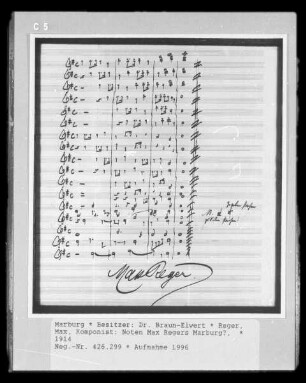 C 5
Max Reger
Marburg * Besitzer: Dr. Braun-Elwert * Reger,
Max, Komponist: Noten Max Regers Marburg?. *
1914
Neg.-Nr. 426.299 * Aufnahme 1996